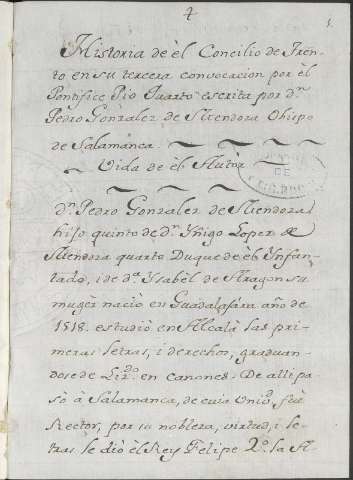 4
1.
Historia de èl Concilio de Tren-
to en su tercera convocacion por èl
Pontifice Pio Quarto escrita por d.n
Pedro Gonzalez de Mendoza Obispo
de Salamanca
Vida de èl Autòr
DE
d.n Pedro Gonzalez de Mendoza
hijo quinto de d.n Yñigo Lopez de
Mendoza quarto Duque de èl Ynfan-
tado, i de d.a Ysabèl de Aragon su
mugèr naciò en Guadalajara año de
1518. estudiò en Alcalà las pri-
meras letras, i derechos, graduan-
dose de Liz.do en canones. De alli pa-
sò à Salamanca, de cuia Univ.d fuè
Rector, por su nobleza, virtud, i le-
tras le diò èl Rey Felipe 2.o la A-